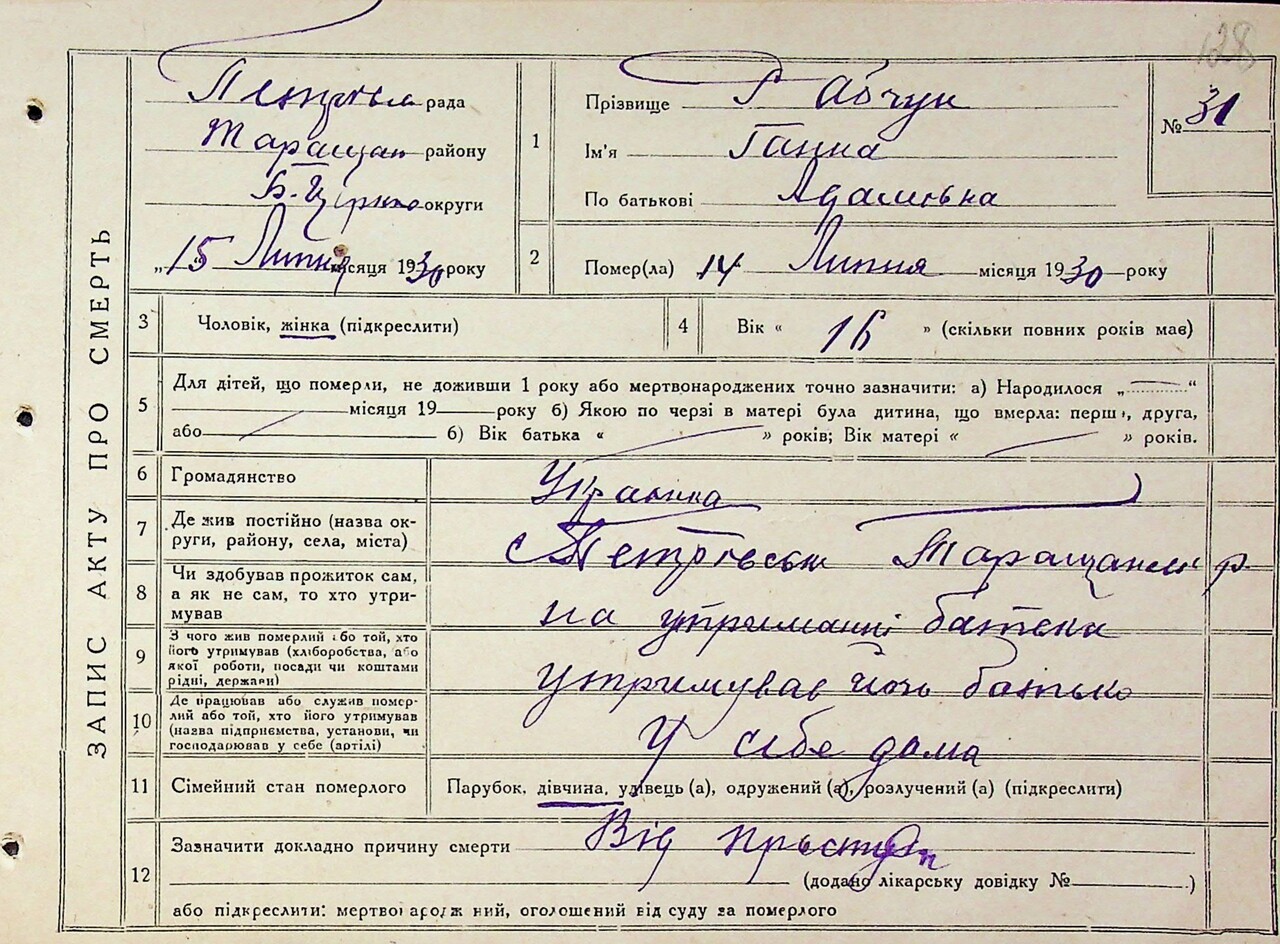 128
Петрівська рада
Таращан району
Б.-Церків округи
„15" Липня місяця 1930 року
1
Прізвище Рабчук
Ім'я Ганна
По батькові Адамовна
№ 31
2
Помер(ла) 14 Липня місяця 1930 року
ЗАПИС АКТУ ПРО СМЕРТЬ
3 Чоловік, жінка (підкреслити)
4 Вік « 16 » (скільки повних років має)
5 Для дітей, що померли, не доживши 1 року або мертвонароджених точно зазначити: а) Народилося „ “
місяця 19 року б) Якою по черзі в матері була дитина, що вмерла: перша, друга,
або б) Вік батька « » років; Вік матері « » років.
6 Громадянство Українка
7 Де жив постійно (назва ок-
руги, району, села, міста)
8 Чи здобував прожиток сам,
а як не сам, то хто утри-
мував
на утриманні батька
9 З чого жив померлий або той, хто
його утримував (хліборобства, або
якої роботи, посади чи коштами
рідні, держави)
утримував йочь батько
10 Де працював або служив помер-
лий або той, хто його утримував
(назва підприємства, установи, чи
господарював у себе (артілі)
У себе дома
11 Сімейний стан померлого Парубок, дівчина, удівець (а), одружений (а), розлучений (а) (підкреслити)
12 Зазначити докладно причину смерти Від
(додано лікарську довідку № )
або підкреслити: мертвонароджений, оголошений від суду за померлого